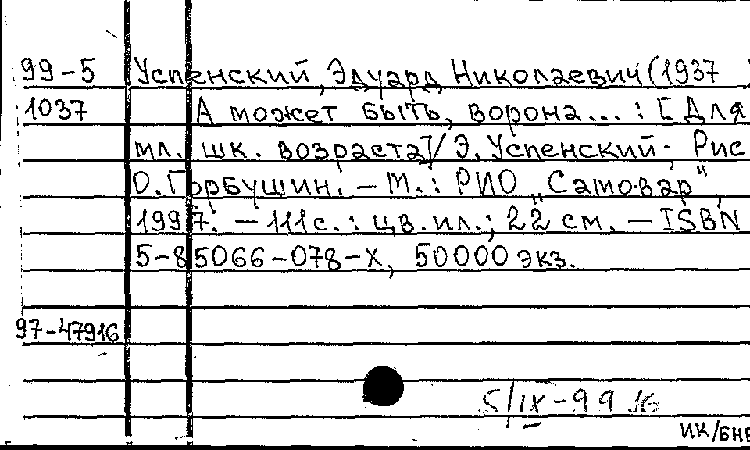 99-5 Успенский, Эдуард Николаевич (1937
1037 А может быть, ворона... : [Для
мл. шк. возраста] / Э. Успенский; Рис
О. Горбушин. – М.: РИО „Самовар",
1997. – 111 с. : цв. ил.; 22 см. – ISBN
5-85066-078-X, 50000 экз.
97-47916
5/IX-99
ИК/БНБ